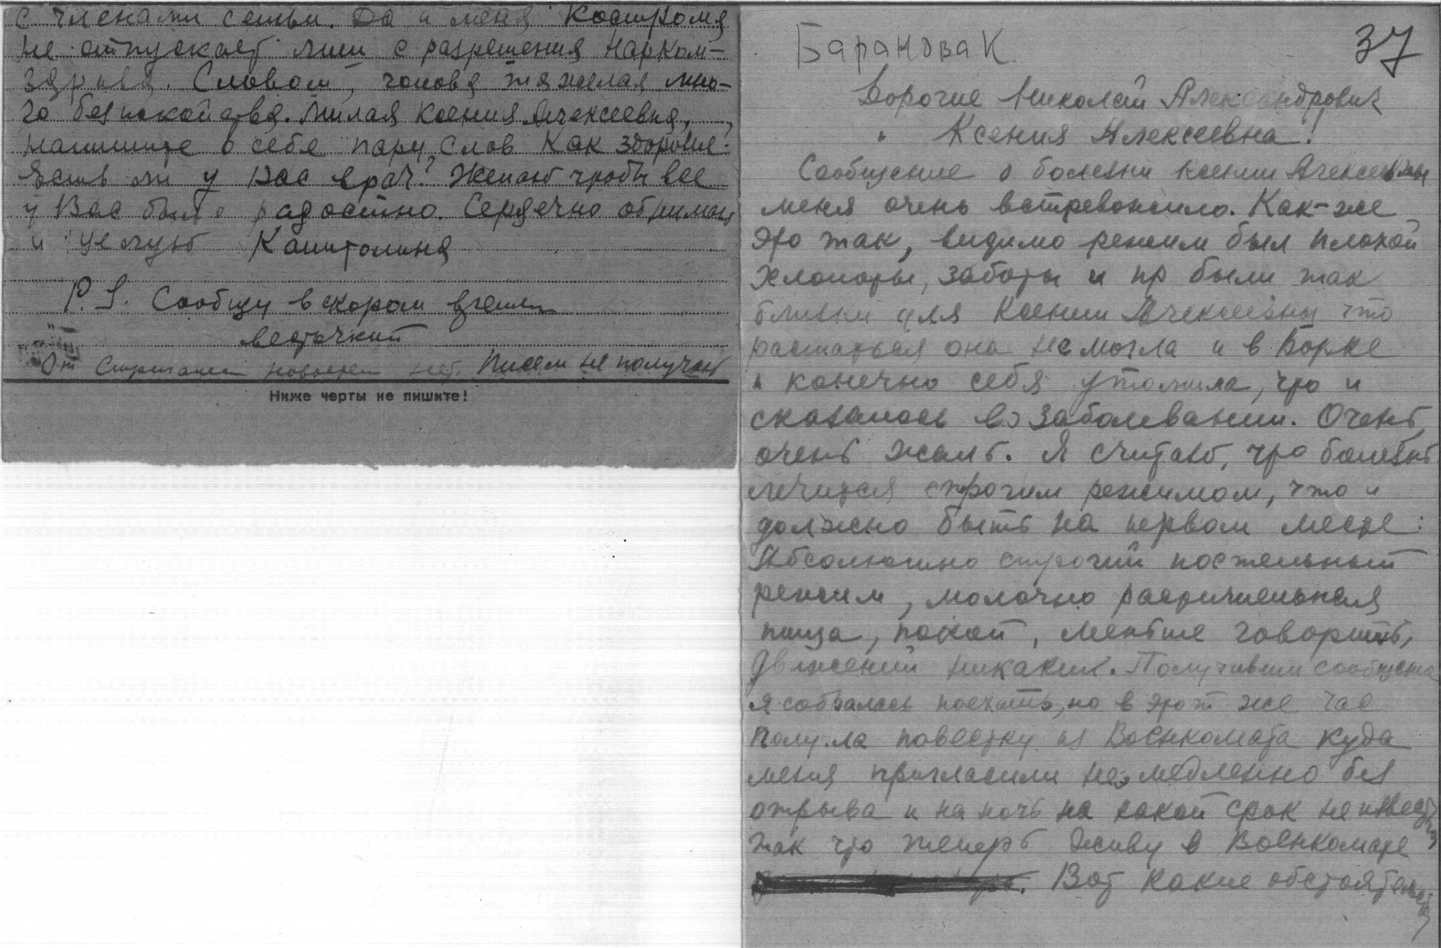 с членами семьи. Да и меня Кострома
не отпускает лишь с разрешения Нарком-
здрава. Словом, голова тяжелая мно-
го безпокойства. Милая Ксения Алексеевна,
напишите о себе пару слов Как здоровье?
Есть ли у Вас врач? Желаю чтобы все
у Вас было радостно. Сердечно обнимаю
и целую Капитолина
P.S. Сообщу в скором времени
весточкой
От новостей нет. Писем не получаю
Ниже черты не пишите!
Баранова К
37
Дорогие Николай Александрович
и Ксения Алексеевна!
Сообщение о болезни Ксении Алексеевны
меня очень встревожило. Как-же
это так, видимо режим был плохой
хлопоты, заботы и пр были так
близки для Ксении Алексеевны что
расстаться она не могла и в Борке
и конечно себя утомила, что и
сказалось в заболевании. Очень,
очень жаль. Я считаю, что болезнь
лечится строгим режимом, что и
должно быть на первом месте:
Абсолютно строгий постельный
режим, молочно растительная
пища, покой, меньше говорить,
движений никаких. Получивши сообщение
я собралась поехать, но в этот же час
получила повестку из Военкомата куда
меня пригласили немедленно без
отрыва и на ночь на какой срок не известно
так что теперь живу в Военкомате
Вот какие обстоятельства